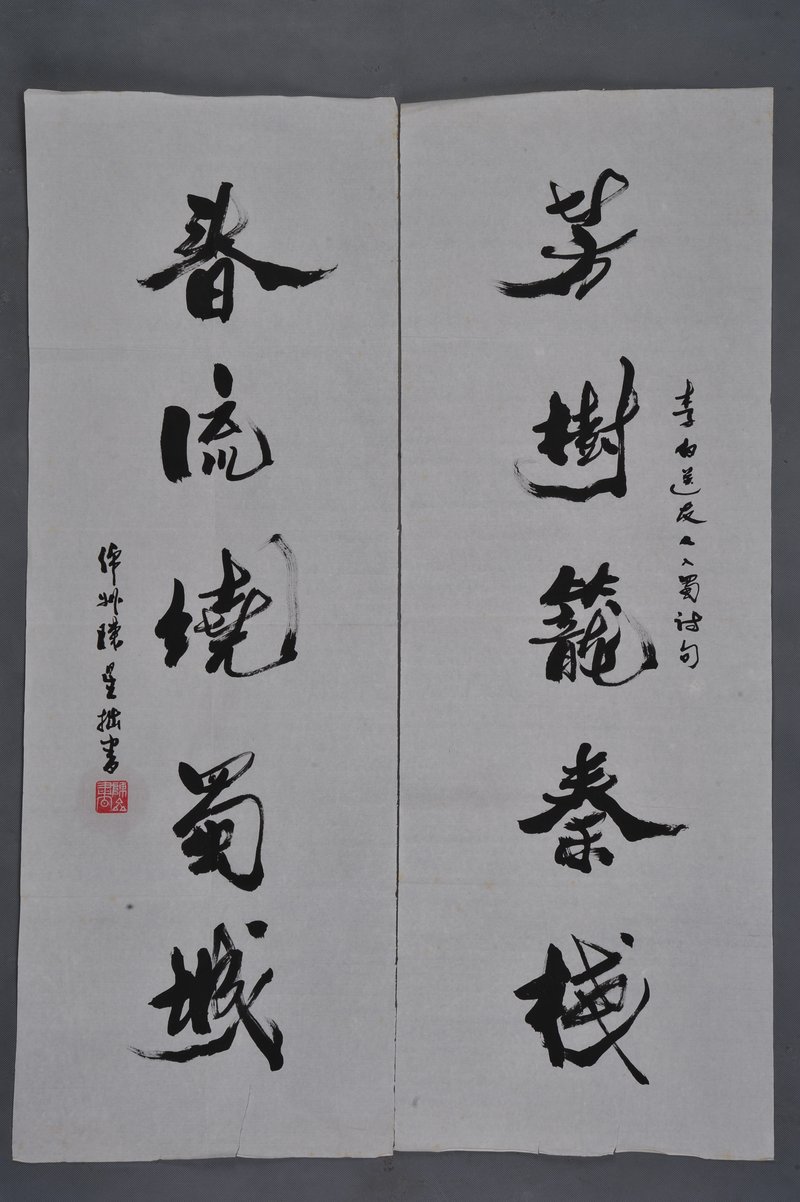 李白送友人入蜀诗句
芳樹籠秦棧
春流繞蜀城
陳星拙書